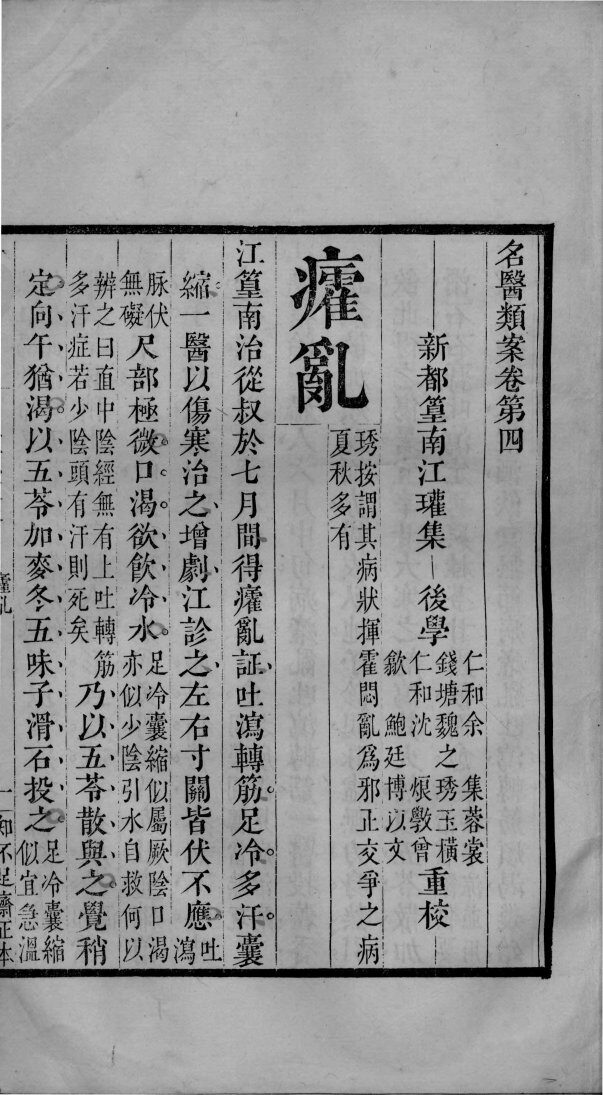 名醫類案卷第四
新都篁南江瓘集
後學
仁和余　集蓉裳
錢塘魏之琇玉橫
仁和沈　烺敦曾
歙　鮑廷博以文
重校
癨亂
琇按謂其病狀揮霍悶亂爲邪正交爭之病
夏秋多有
江篁南治從叔於七月間得癨亂証吐瀉轉筋足冷多汗囊
縮一醫以傷寒治之增劇江診之左右寸關皆伏不應吐瀉
脉伏無礙尺部極微口渴欲飲冷水足冷囊縮似屬厥陰口渴亦似少陰引水自救何以
辨之曰直中陰經無有上吐轉筋多汗症若少陰頭有汗則死矣乃以五苓散與之覺稍
定向午猶渴以五苓加麥冬五味子滑石投之足冷囊縮似宜急溫
癨亂
一
知不足齋正本